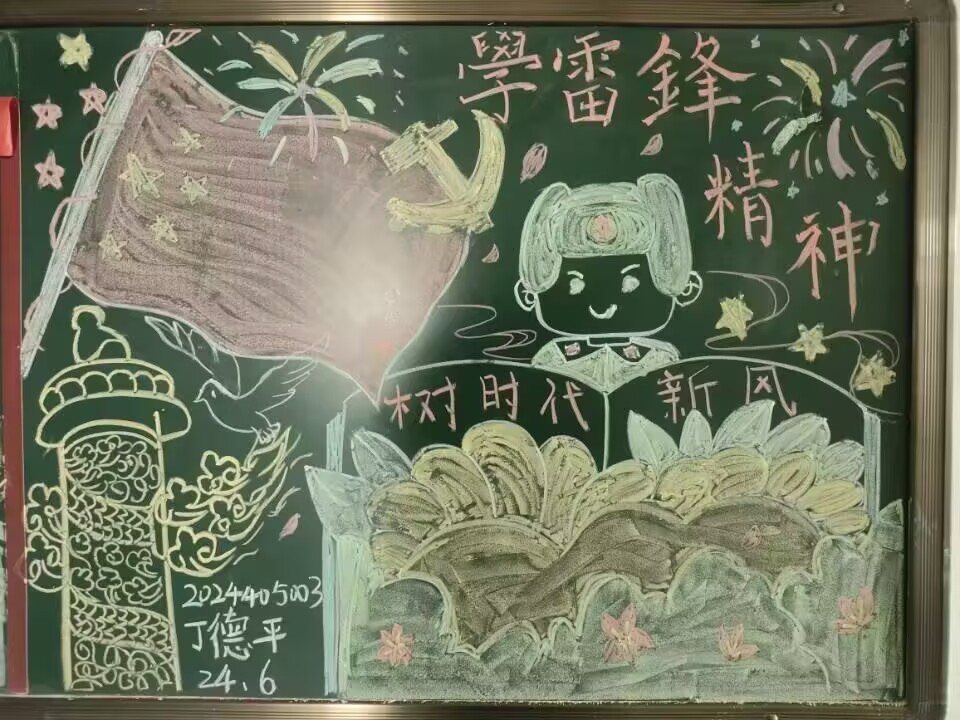 學雷鋒
精
神
树时代 新风
2024405003
丁德平
24.6